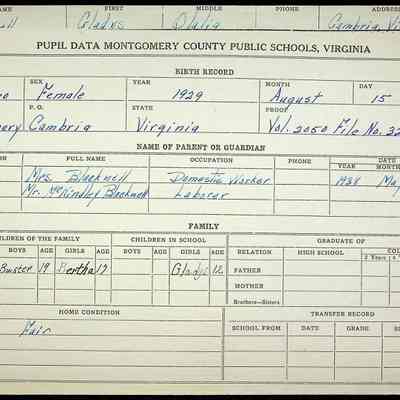 NAME FIRST MIDDLE PHONE ADDRESS
ll Gladys Olalia Cambria, Vi
PUPIL DATA MONTGOMERY COUNTY PUBLIC SCHOOLS, VIRGINIA
BIRTH RECORD
SEX YEAR MONTH DAY
Female 1929 August 15
P. O. STATE PROOF
Cambria Virginia Vol. 2050 File No. 32
NAME OF PARENT OR GUARDIAN
FULL NAME OCCUPATION PHONE DATE
YEAR MONTH
Mrs. Blackwell Domestic Worker 1934 May
Mr. McKindley Blackwell Laborer
FAMILY
CHILDREN OF THE FAMILY CHILDREN IN SCHOOL GRADUATE OF
BOYS AGE GIRLS AGE BOYS AGE GIRLS AGE RELATION HIGH SCHOOL
Buster 19 Bertha 17 Gladys 12 FATHER
MOTHER
Brothers—Sisters
HOME CONDITION TRANSFER RECORD
Fair SCHOOL FROM DATE GRADE